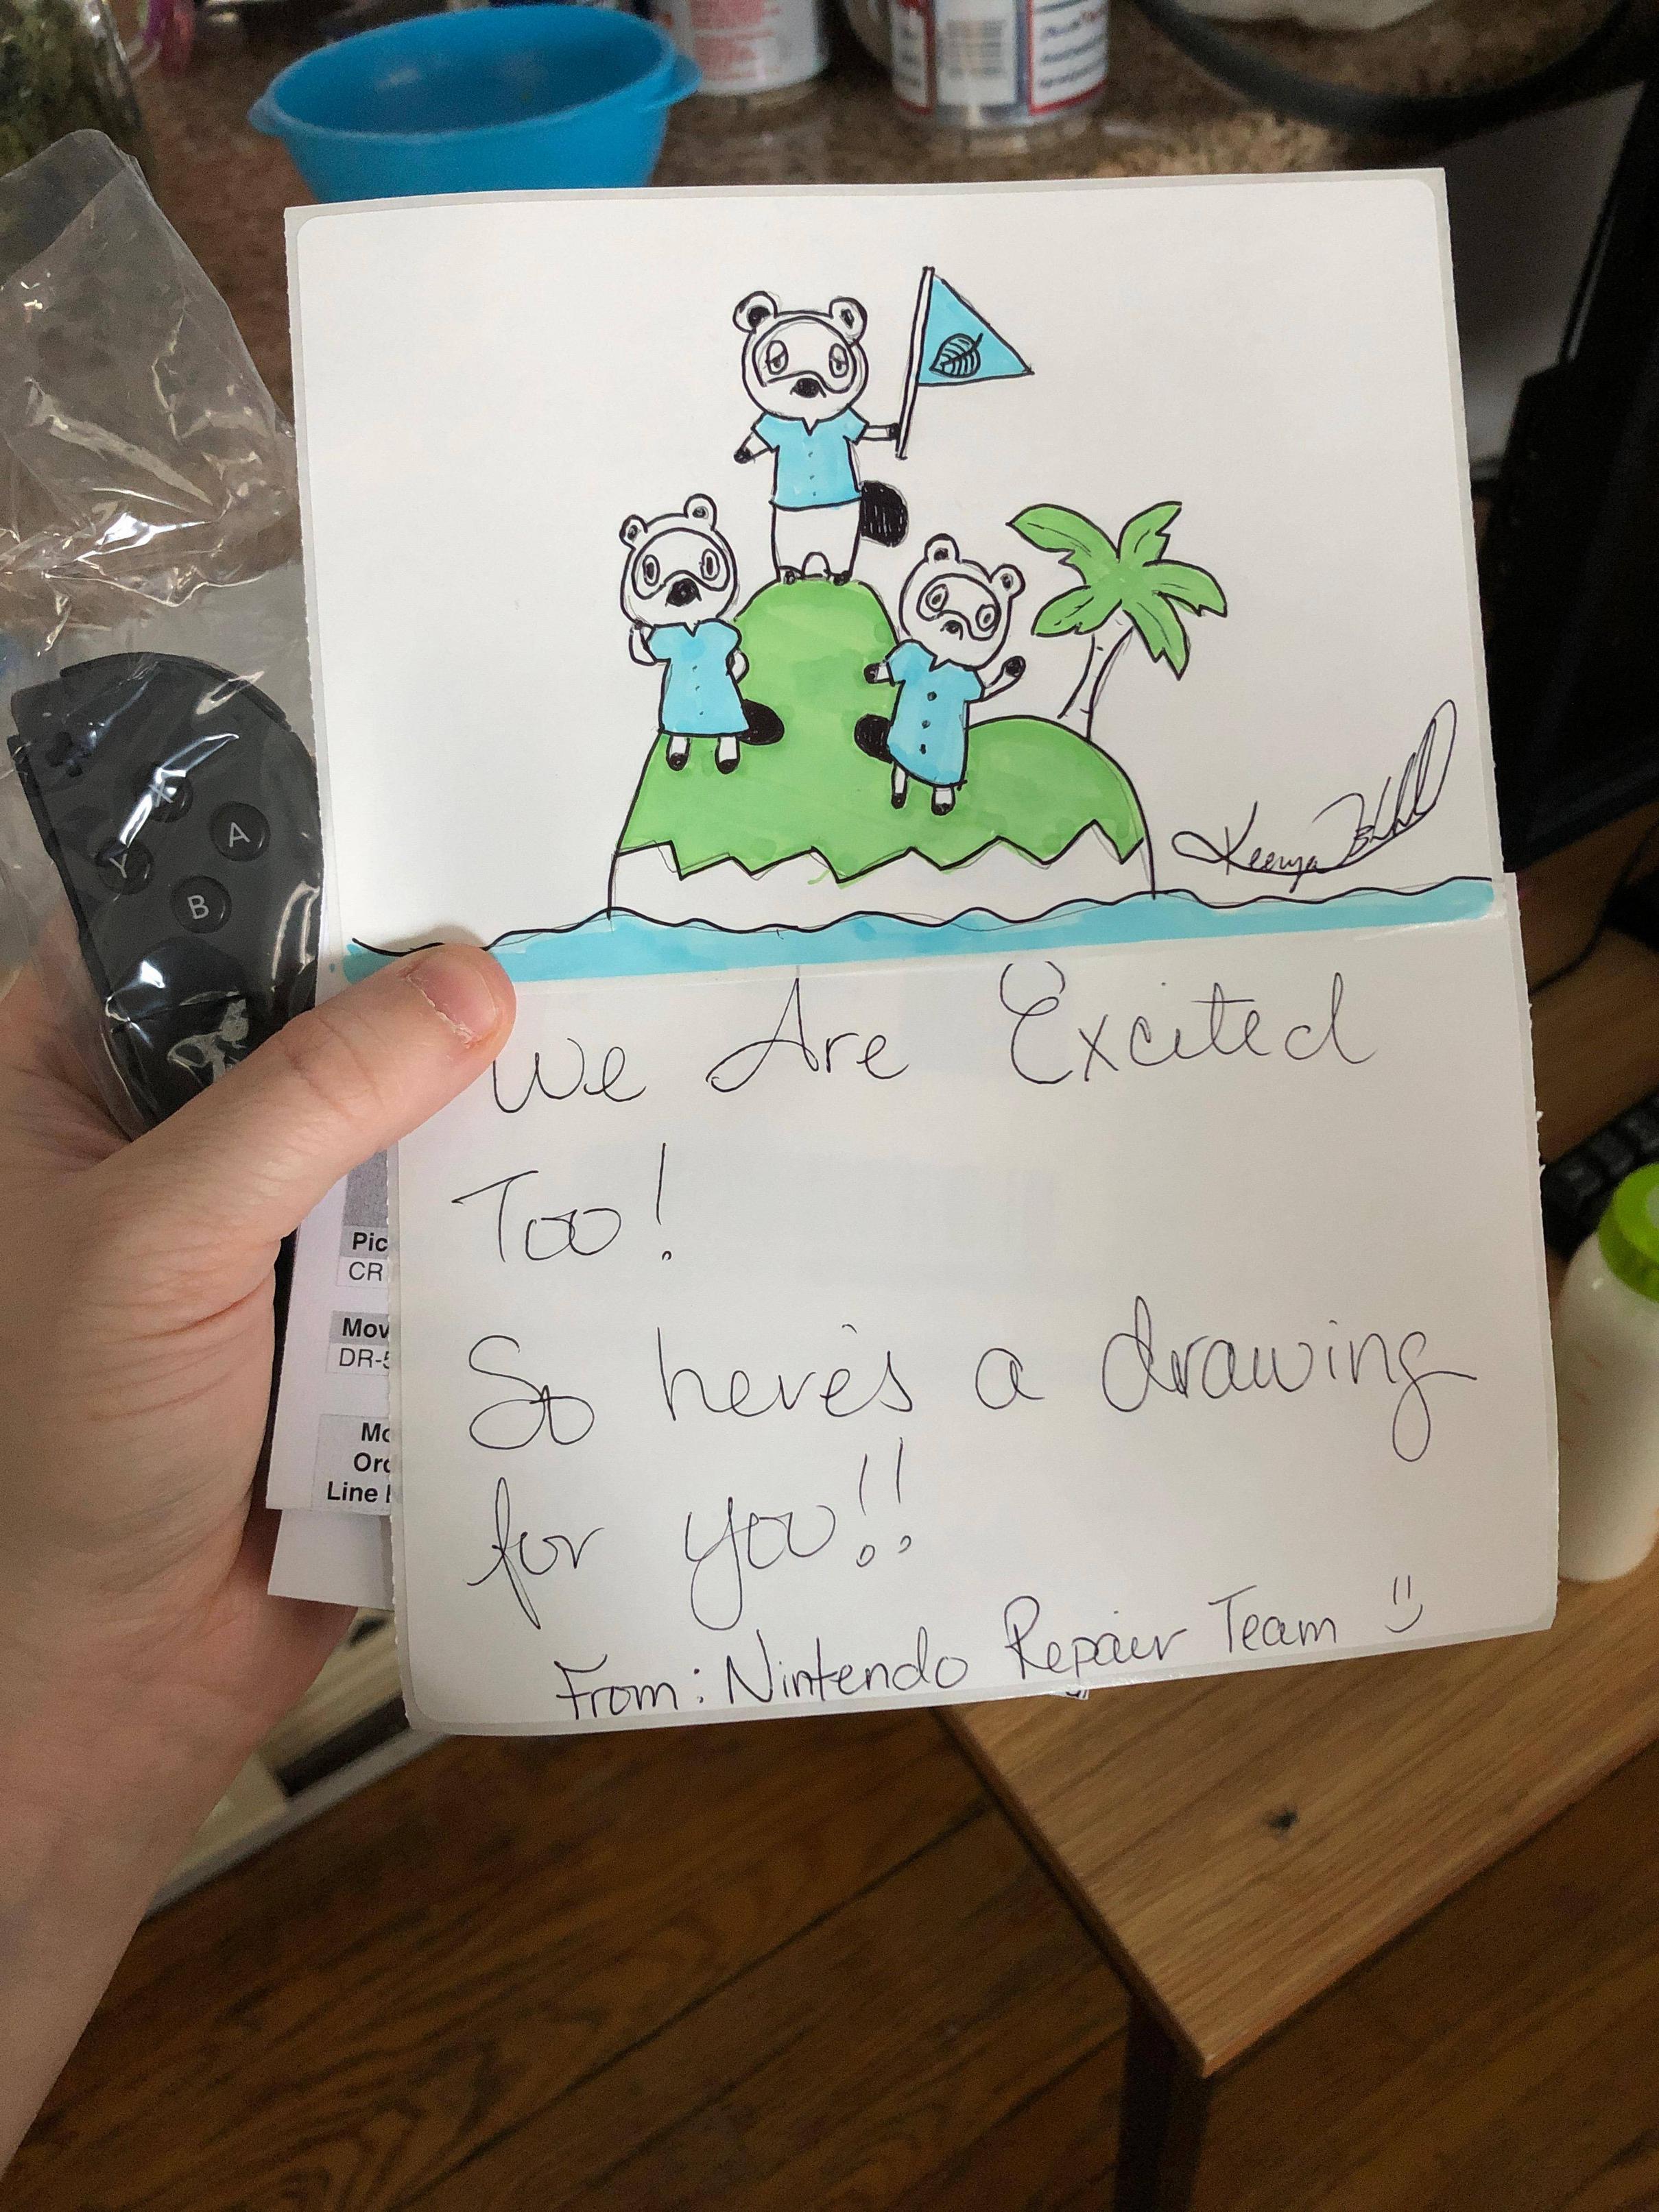 X
A
Y
B
Keenya
We Are Excited
Too!
So here's a drawing
for you!!
From: Nintendo Repair Team
Pic
CR
Mov
DR-5
Mo
Ord
Line